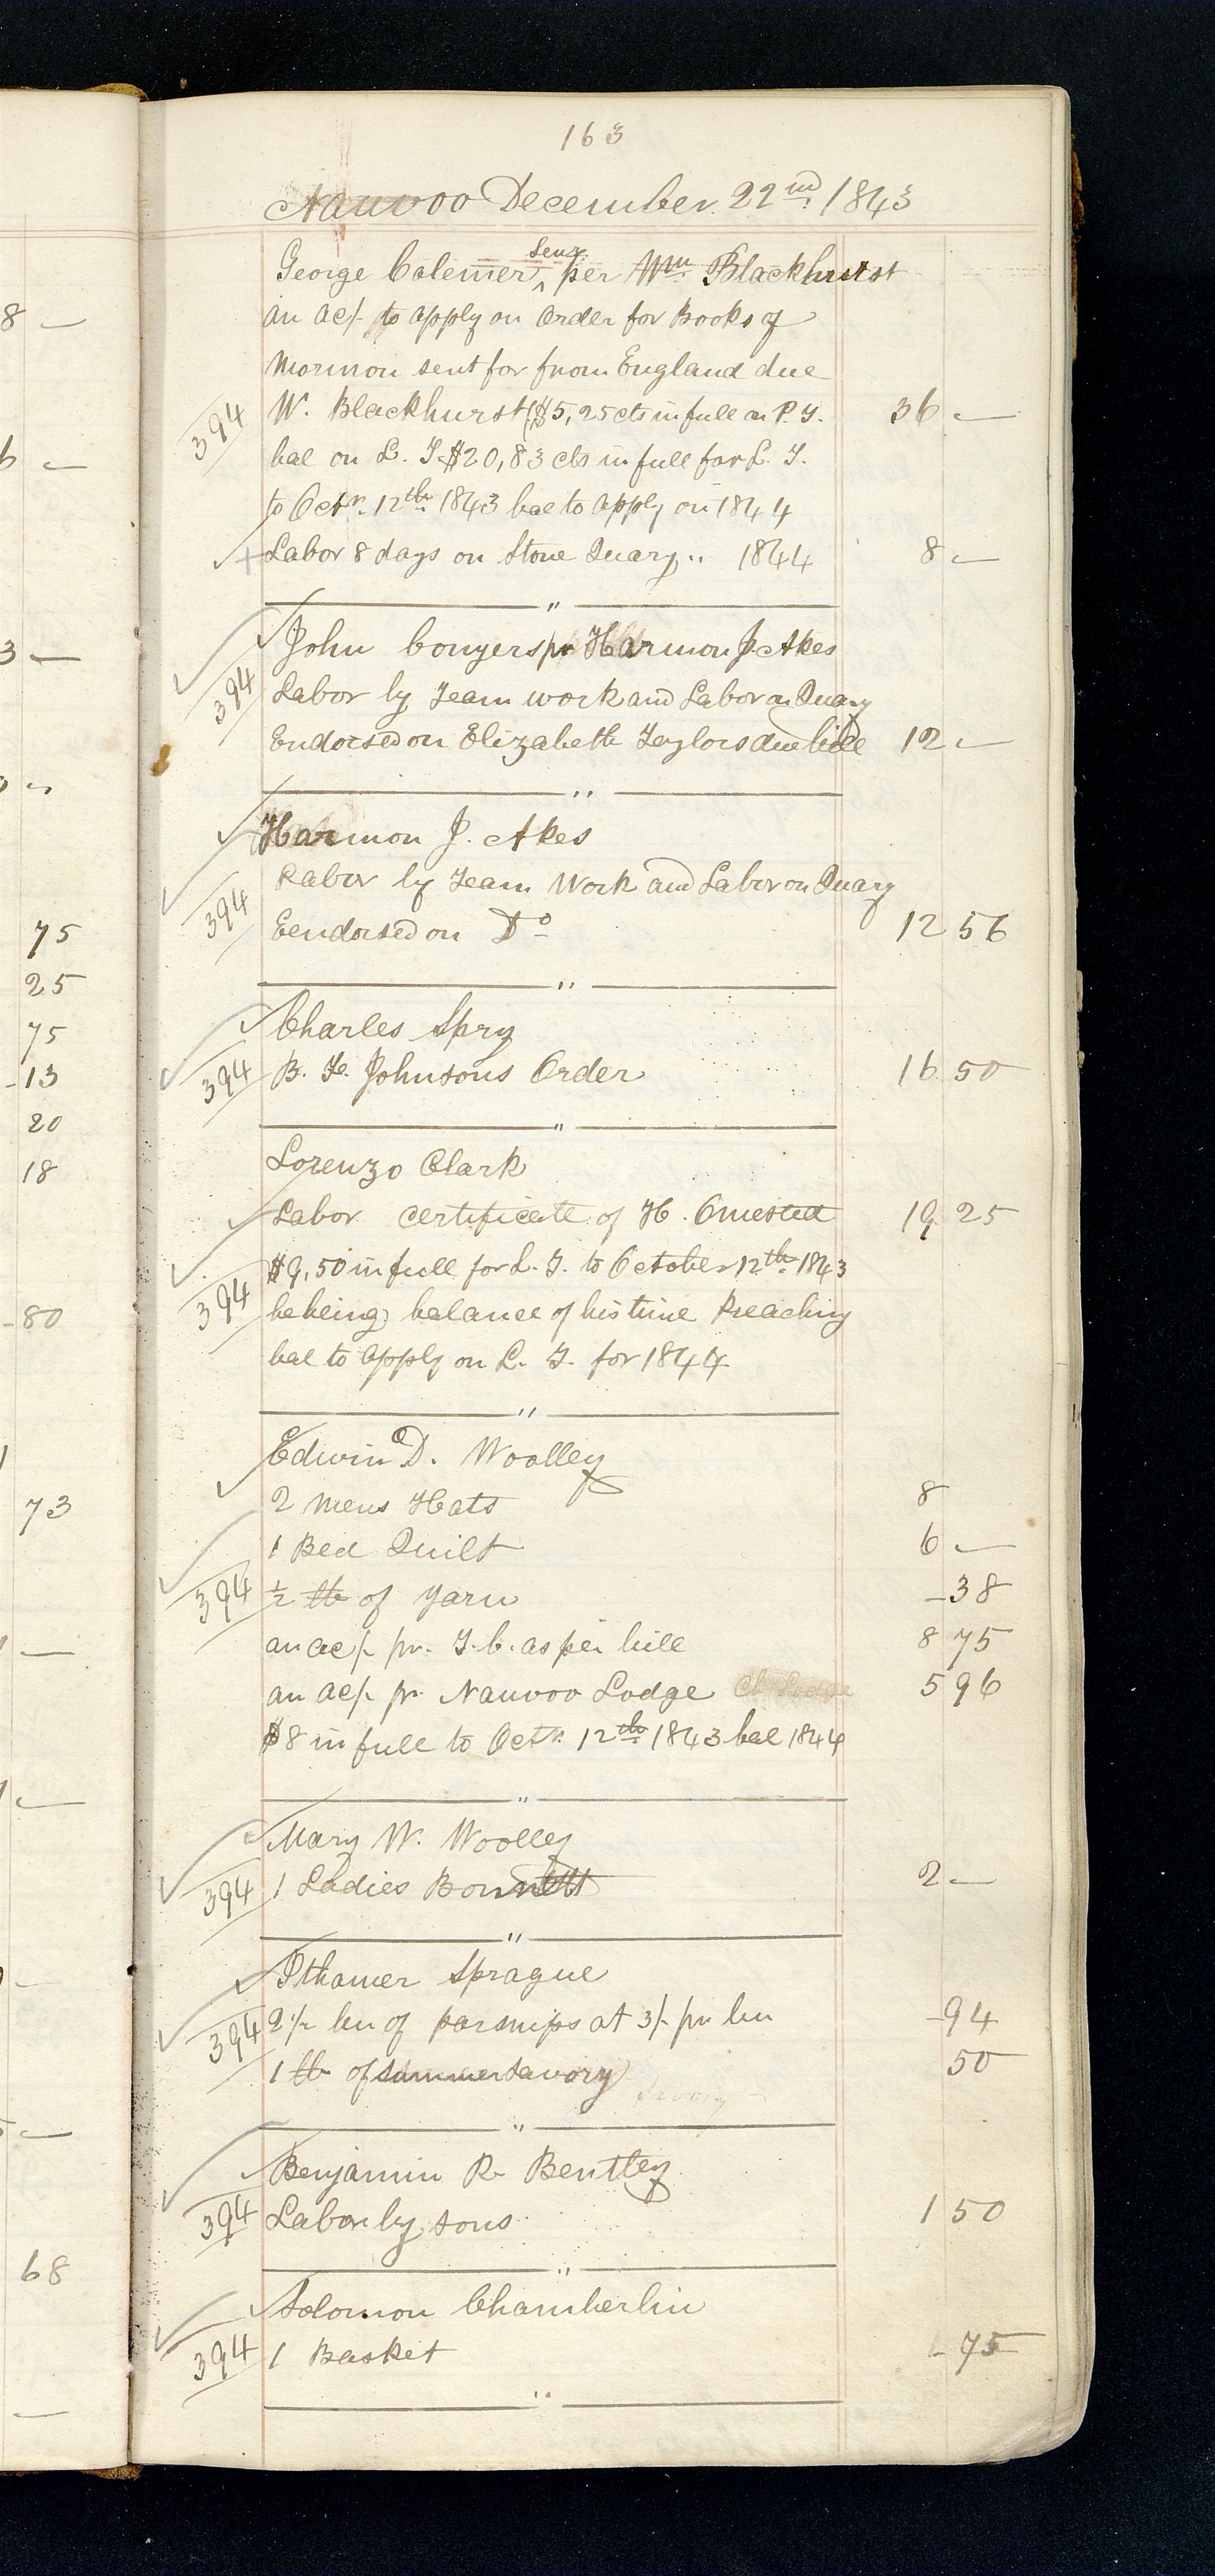 163
Nauvoo December 22nd 1843
George Colemer, Senr per Wm Blackhurst
an ac/- to apply on Order for Books of
Mormon sent for from England due
394 W. Blackhurst ($5,25 cts in full on P. T. 36 —
bal on L. T. $20,83 cts in full for L. T.
to Octr. 12th 1843 bal to apply on 1844
Labor 8 days on Stone Quary " 1844 8 —
John Conyers pr Harmon J. Akes
394 Labor by Team work and Labor on Quary
Endorsed on Elizabeth Taylors due bill 12 —
Harmon J. Akes
Labor by Team Work and Labor on Quary
394 Eendorsed on Do 12 56
Charles Spry
394 B. F. Johnsons Order 16 50
Lorenzo Clark
Labor certificate of H. Omested 19 25
$9,50 in full for L. T. to October 12th 1843
394 he being balance of his time Preaching
bal to apply on L. T. for 1844
Edwin D. Woolley
2 mens Hats 8
1 Bed Quilt 6 —
394 ½ lb of Yarn - 38
an ac/- pr. T. C. as per bill 8 75
an ac/- pr Nauvoo Lodge 5 96
$8 in full to Octr. 12th 1843 bal 1844
Mary W. Woolley
394 1 Ladies Bonnett 2 —
Ithamer Sprague
394 2½ bu of parsnips at 3/- pr bu - 94
1 lb of summer savory 50
Benjamin R. Bentley
394 Labor by sons 1 50
Solomon Chamberlin
394 1 Basket - 75
8 —
6 —
3 —
75
25
75
-13
20
18
-80
73
68